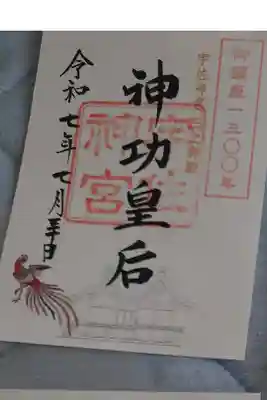 御鎮座一三〇〇年
神功皇后
宇佐
神宮
令和七年七月三十日